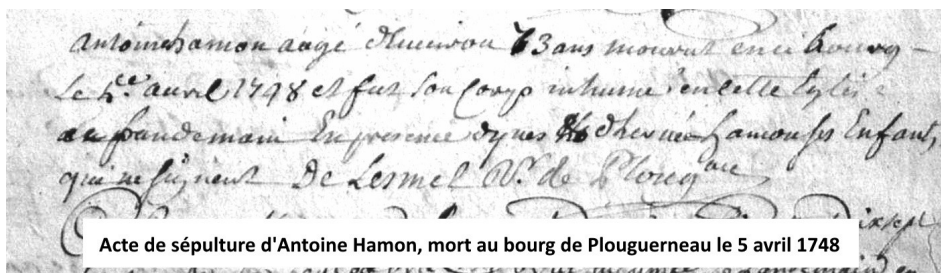 antoine hamon aagé d'environ 73 ans mourut en ce bourg
le 5e avril 1748 et fut son corps inhumé en cette Eglise
au landemain En presence d'yves & d'hervé hamon ses Enfants,
qui ne signent De Lesmel Vre. de Ploug.au
Acte de sépulture d'Antoine Hamon, mort au bourg de Plouguerneau le 5 avril 1748